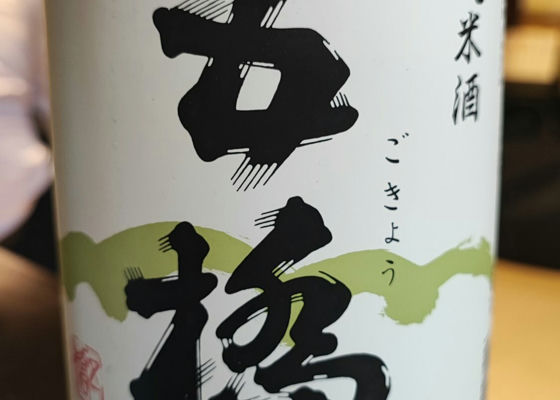 米酒
五橋
ごきょう